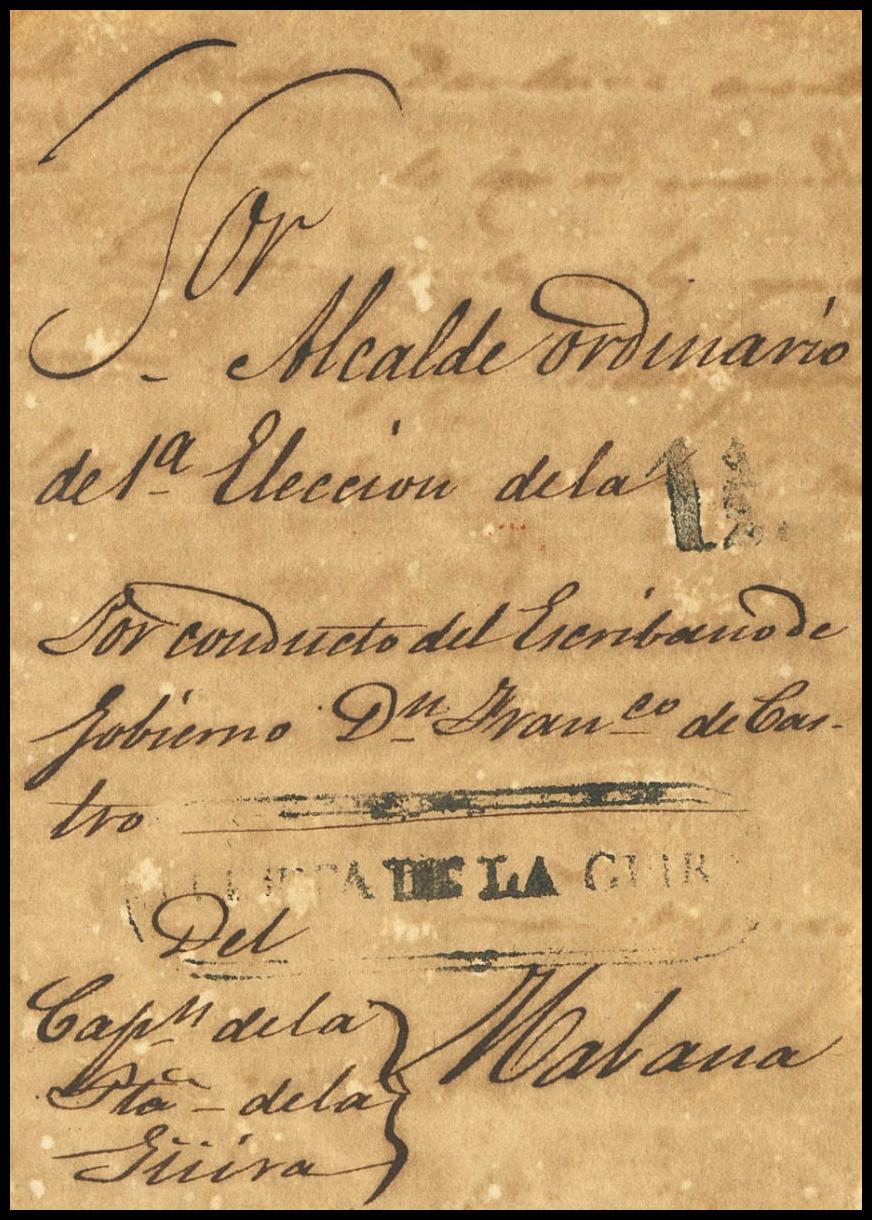 Sor
Alcalde ordinario
de 1ª Eleccion dela
Por conducto del Escribano de
Gobierno Dn Franco de Cas-
tro
DE LA GUIRA
Del
Capn dela
Pta dela
Güira
Habana